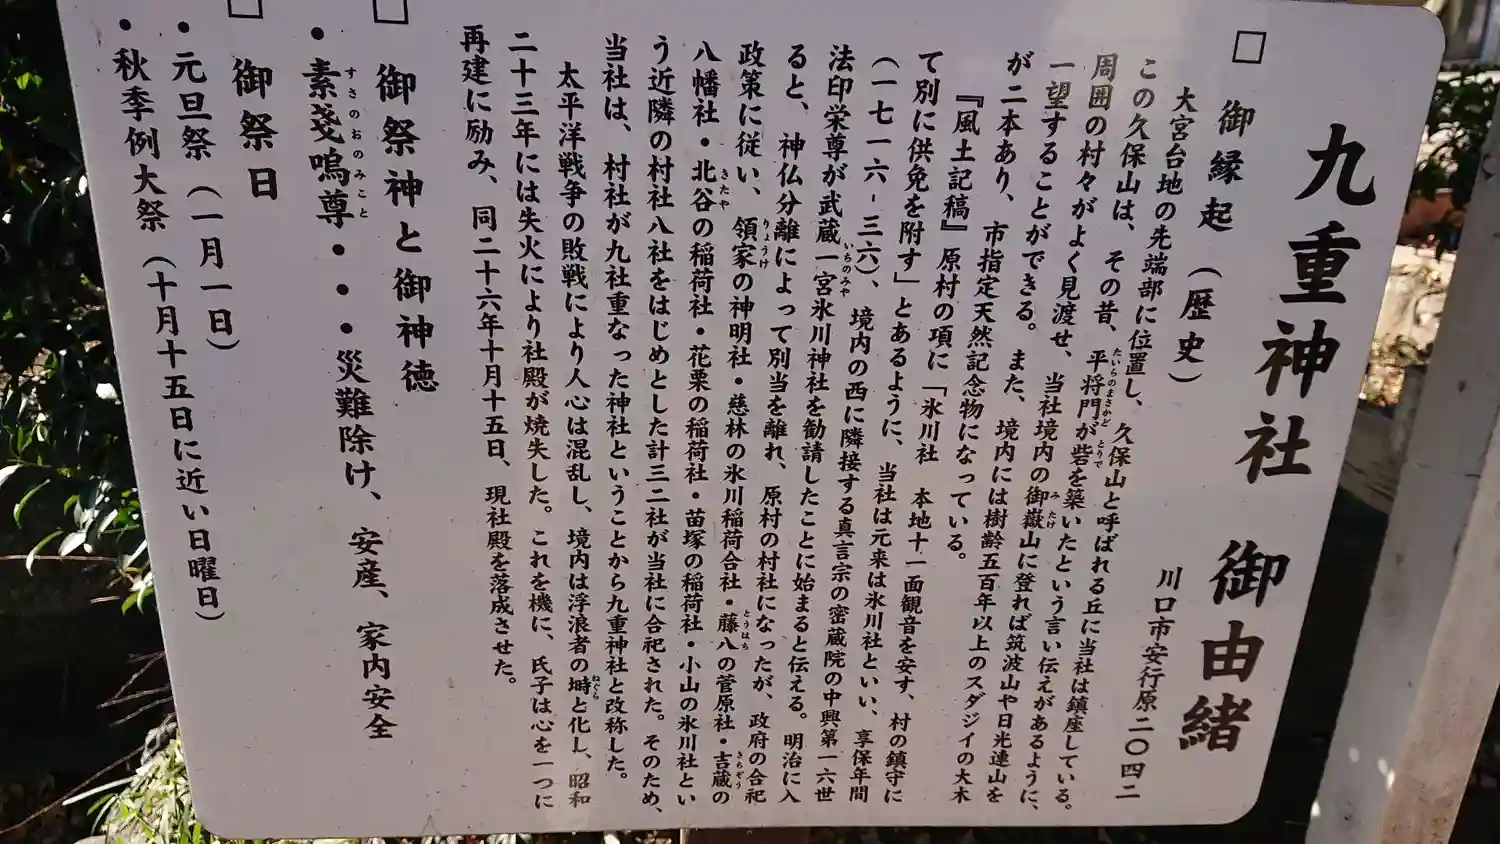 九重神社 御由緒
川口市安行原二〇四二
□ 御縁起（歴史）
大宮台地の先端部に位置し、久保山と呼ばれる丘に当社は鎮座している。
この久保山は、その昔、平将門が砦を築いたという言い伝えがあるように、
周囲の村々がよく見渡せ、当社境内の御嶽山に登れば筑波山や日光連山を
一望することができる。また、境内には樹齢五百年以上のスダジイの大木
が二本あり、市指定天然記念物になっている。
『風土記稿』原村の項に「氷川社 本地十一面観音を安す、村の鎮守に
て別に供免を附す」とあるように、当社は元来は氷川社といい、享保年間
（一七一六-三六）、境内の西に隣接する真言宗の密蔵院の中興第一六世
法印栄尊が武蔵一宮氷川神社を勧請したことに始まると伝える。明治に入
ると、神仏分離によって別当を離れ、原村の村社になったが、政府の合祀
政策に従い、領家の神明社・慈林の氷川稲荷合社・藤八の菅原社・吉蔵の
八幡社・北谷の稲荷社・花栗の稲荷社・苗塚の稲荷社・小山の氷川社とい
う近隣の村社八社をはじめとした計三二社が当社に合祀された。そのため、
当社は、村社が九社重なった神社ということから九重神社と改称した。
太平洋戦争の敗戦により人心は混乱し、境内は浮浪者の塒と化し、昭和
二十三年には失火により社殿が焼失した。これを機に、氏子は心を一つに
再建に励み、同二十六年十月十五日、現社殿を落成させた。
□ 御祭神と御神徳
・素戔嗚尊・・・災難除け、安産、家内安全
□ 御祭日
・元旦祭（一月一日）
・秋季例大祭（十月十五日に近い日曜日）